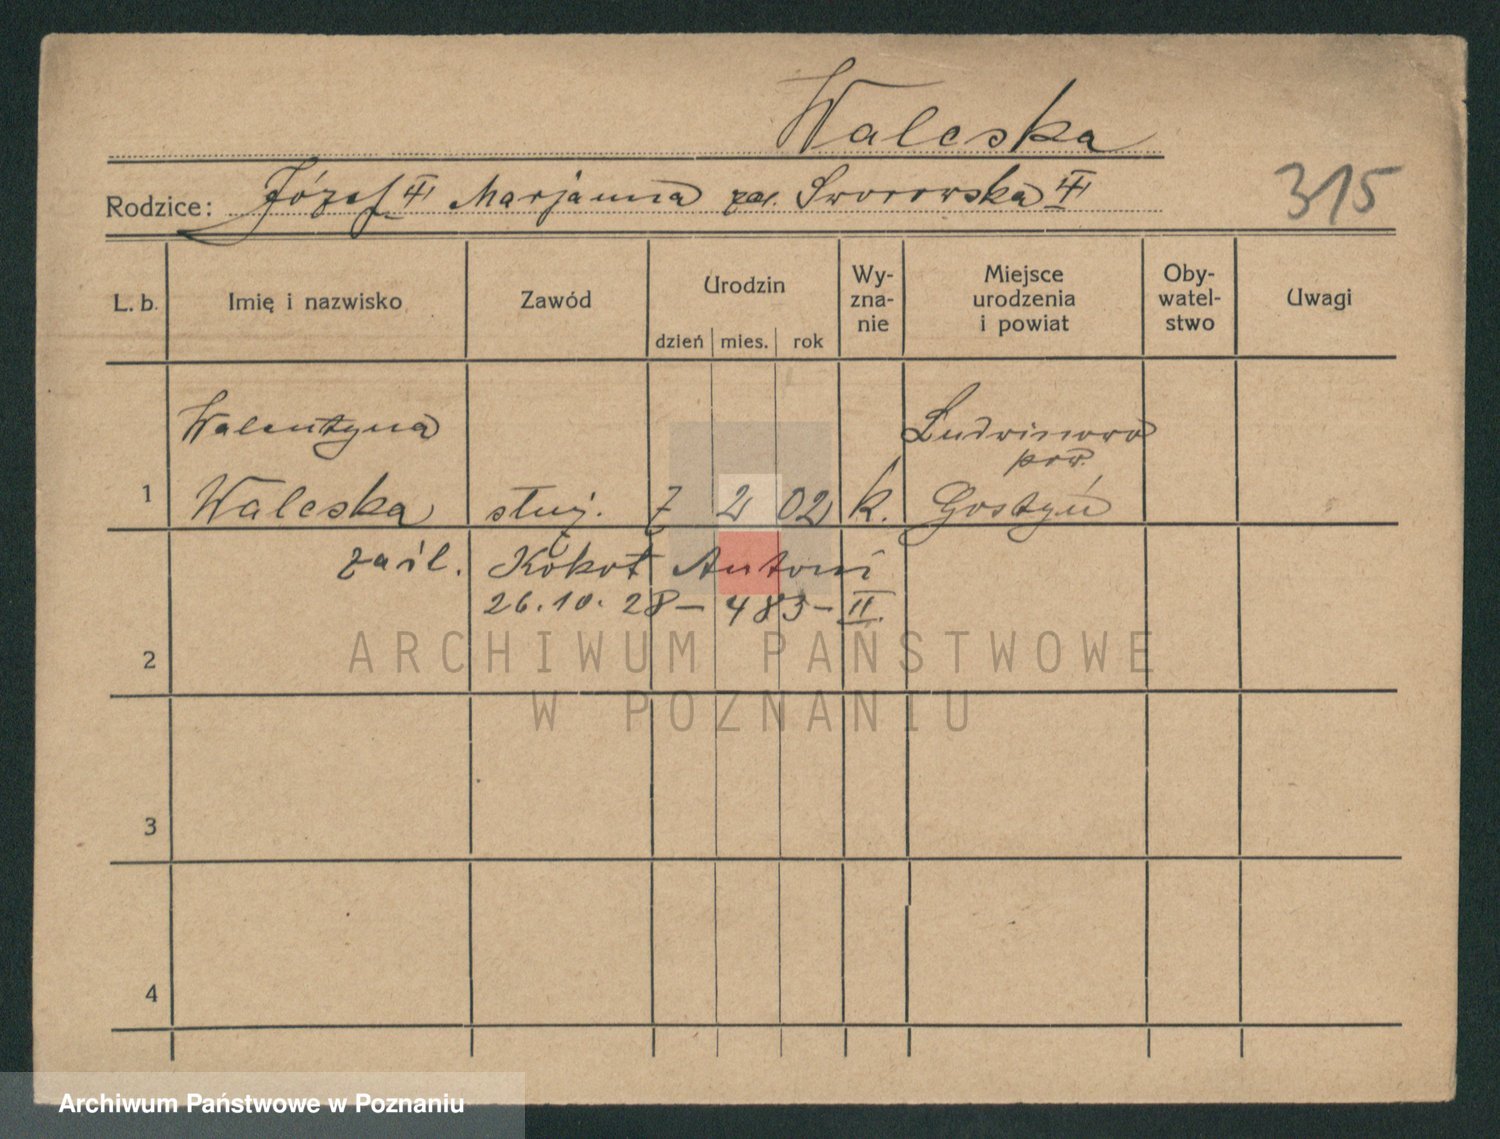 Walcska
Rodzice: Józef Marjanna zd. Sworowska
315
L. b. Imię i nazwisko Zawód Urodzin dzień mies. rok Wy-zna-nie Miejsce urodzenia i powiat Oby-watel-stwo Uwagi
Walentyna Ludwinowo
pow.
1 Walcska służ. 7 2 02 k. Gostyń
zaśl. Kokot Antoni
26.10.28 – 483 – II.
2
3
4
ARCHIWUM PAŃSTWOWE
W POZNANIU
Archiwum Państwowe w Poznaniu